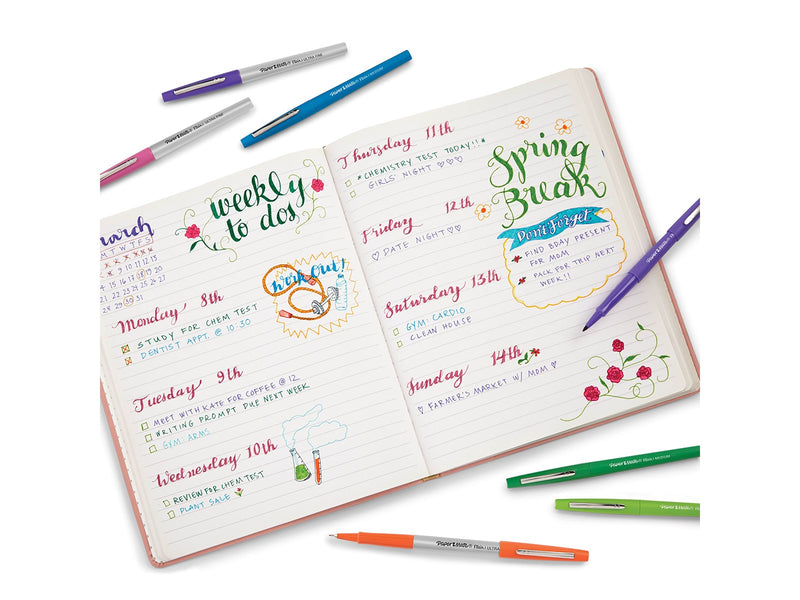 Paper Mate® Flair / ULTRA FINE
Paper Mate® Flair / MEDIUM
Paper Mate® Flair / ULTRA FINE
weekly
to dos
arch
M T W T F S
9 10 11 12 13
14 15 16 17 18 19 20
21 22 23 24 25 26 27
28 29 30 31
work out!
Monday 8th
STUDY FOR CHEM TEST
DENTIST APPT. @ 10:30
Tuesday 9th
MEET WITH KATE FOR COFFEE @ 12
WRITING PROMPT DUE NEXT WEEK
GYM: ARMS
Wednesday 10th
REVIEW FOR CHEM TEST
PLANT SALE
Thursday 11th
*CHEMISTRY TEST TODAY!!*
GIRLS' NIGHT ♡♡♡
Friday 12th
♡ DATE NIGHT ♡
Saturday 13th
GYM: CARDIO
CLEAN HOUSE
Sunday 14th
♡ FARMER'S MARKET W/ MOM ♡
Spring
Break
Don't Forget
FIND BDAY PRESENT
FOR MOM
PACK FOR TRIP NEXT
WEEK!!
Paper Mate® Flair / MEDIUM
Paper Mate® Flair / ULTRA FINE